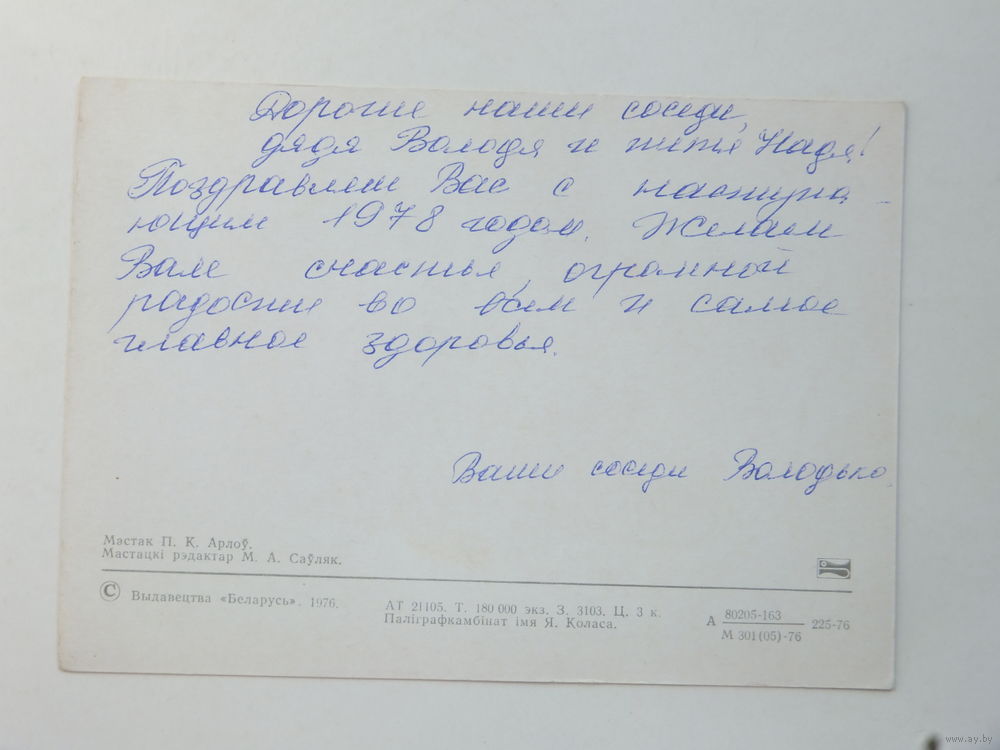 Дорогие наши соседи,
дядя Володя и тётя Надя!
Поздравляем Вас с наступа-
ющим 1978 годом. Желаем
Вам счастья, огромной
радости во всём и самое
главное здоровья.
Ваши соседи Володько.
Мастак П. К. Арлоў.
Мастацкі рэдактар М. А. Саўляк.
© Выдавецтва «Беларусь». 1976.
АТ 21105. Т. 180 000 экз. З. 3103. Ц. 3 к.
Паліграфкамбінат імя Я. Коласа.
А 80205-163 225-76
М 301(05)-76
www.ay.by